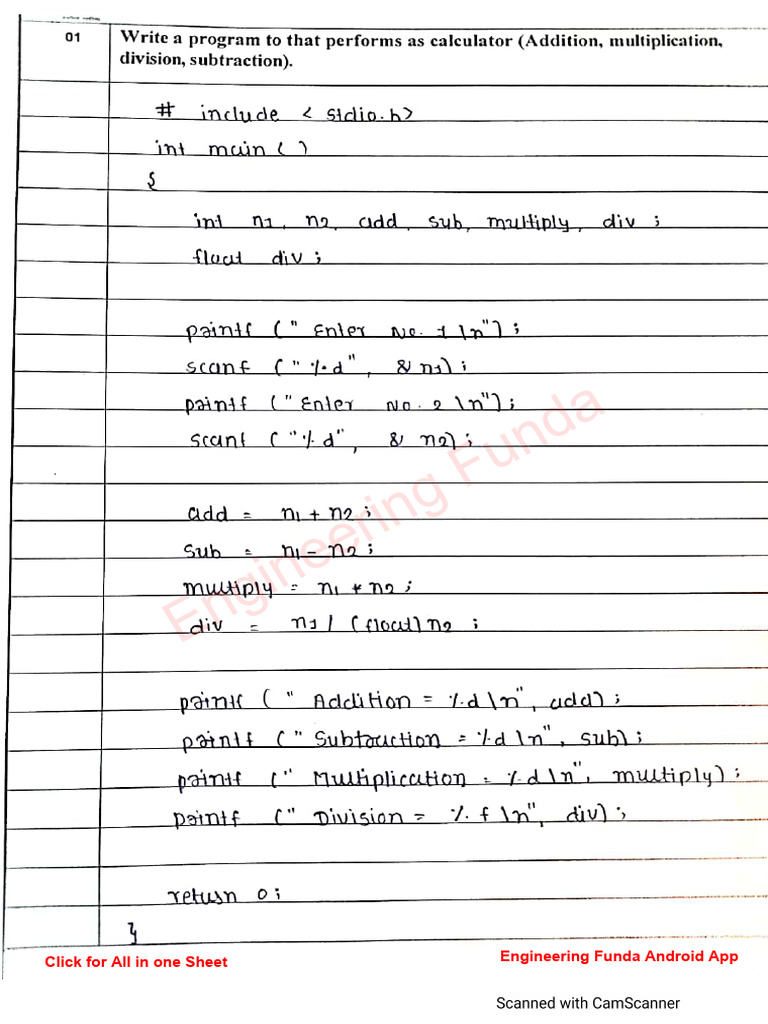 01 Write a program to that performs as calculator (Addition, multiplication,
division, subtraction).
# include < stdio.h>
int main ( )
{
int n1, n2, add, sub, multiply, div ;
float div ;
printf (" Enter No. 1 \n") ;
scanf ( " %d" , & n1) ;
printf ( "Enter No. 2 \n") ;
scanf ( "%d" , & n2) ;
add = n1 + n2 ;
sub = n1 - n2 ;
multiply = n1 * n2 ;
div = n1 / (float) n2 ;
printf ( " Addition = %d \n" , add) ;
printf ( " Subtraction = %d \n" , sub) ;
printf ( " Multiplication = %d \n" , multiply) ;
printf ( " Division = %. f \n" , div) ;
return 0 ;
}
Engineering Funda
Click for All in one Sheet
Engineering Funda Android App
Scanned with CamScanner